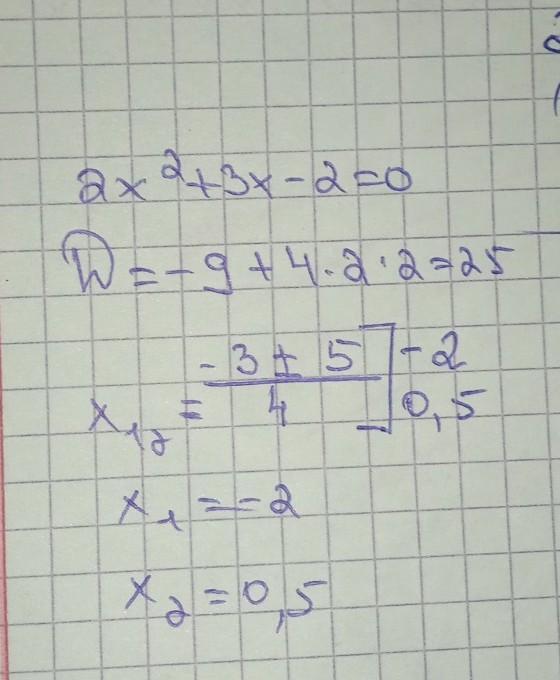 2x²+3x-2=0
D=-9+4·2·2=25
x₁₂ = (-3±5)/4 ] -2 0,5
x₁=-2
x₂=0,5